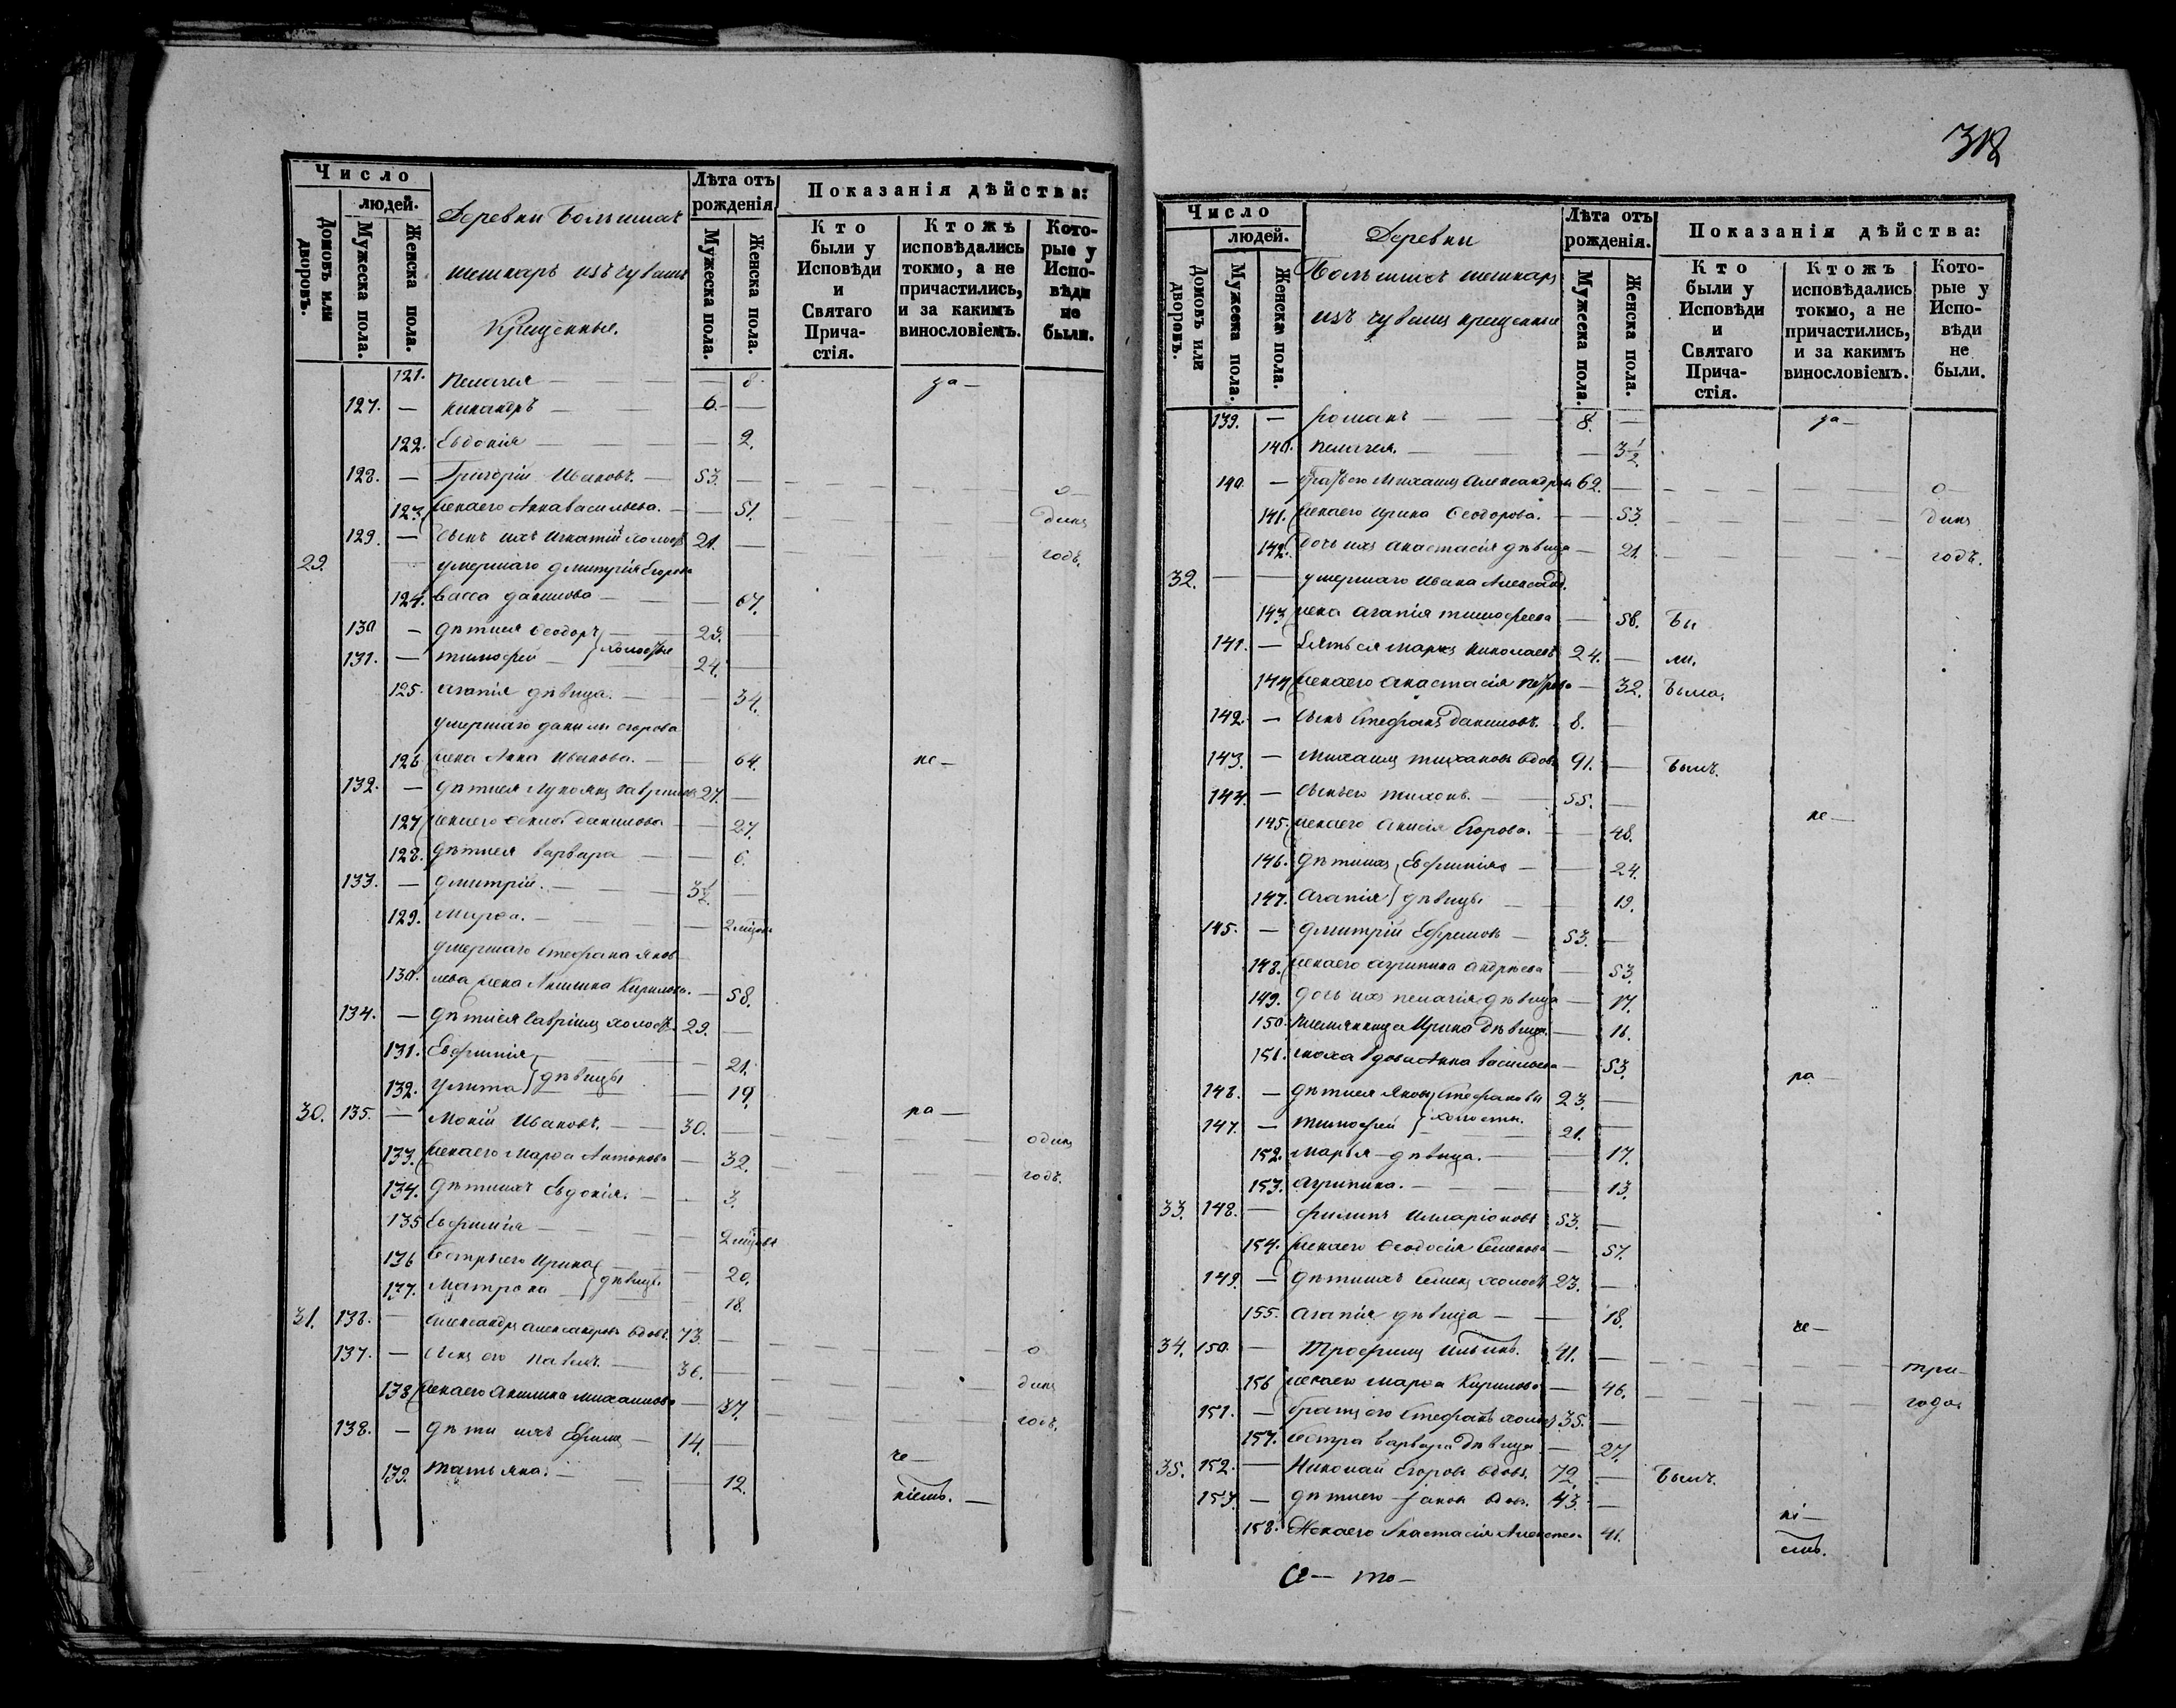 Число
людей.
Домовъ или дворовъ.
Мужеска пола.
Женска пола.
Деревни Большихъ
шешкаръ изъ чувашъ
Крещенные.
Лѣта отъ
рожденія
Мужеска пола.
Женска пола.
Показанія дѣйства:
Кто
были у
Исповѣди
и
Святаго
Прича-
стія.
Ктожъ
исповѣдались
токмо, а не
причастились,
и за какимъ
винословіемъ.
Кото-
рые у
Испо-
вѣди
не
были.
121. Пелагея — 8. за—
127. — Никандръ — 6. —
122. Евдокія — 2.
128. — Григорій Ивановъ. — 53. — о—
123. Жена его Анна Васильева. — 51. динъ
129. — Сынъ ихъ Игнатій холостъ 21. — годъ.
29. умершаго Дмитрія Егорова
124. Васса Данилова — 67.
130 — Дѣти ея Ѳеодоръ } 29. —
131. — Тимофей — } холостые 24. —
125. Агапія дѣвица. — 34.
умершаго Данилы Егорова
126 жена Анна Иванова. — 64. не—
132. — Дѣти ея Лукоянъ Гаврилов 27. —
127 жена его Данилова — 27.
128. Дѣти ея Варвара — 6.
133. — Дмитрій. — 3 1/2. —
129. Марѳа. — 2 мѣцовъ
умершаго Стефана Яков
130. лева жена Акилина Кирилова. — 58.
134. — Дѣти ея Гаврiилъ холостъ 29. —
131. Евфимія } — 21.
132. Улита } дѣвицы — 19.
30. 135. — Мокій Ивановъ. — 30. — ра— одинъ
133. Жена его Марѳа Антонова — 32. — годъ.
134. Дѣти ихъ Евдокія. — 3.
135 Евфимія — 2 мѣцовъ
136 Сестры его Ирина } — 20.
137. Матрона } дѣвицы. — 18.
31. 136. — Александръ Александровъ вдовъ. 73. — о
137. — Сынъ его Павелъ. — 36. — динъ
138 Жена его Акилина Михайлова — 37. — годъ.
138. — Дѣти ихъ Ефимъ — 14. — че—
139. Татьяна. — 12. ніемъ. —
318
Число
людей.
Домовъ или дворовъ.
Мужеска пола.
Женска пола.
Деревни
Большихъ шешкаръ
изъ чувашъ крещенные
Лѣта отъ
рожденія.
Мужеска пола.
Женска пола.
Показанія дѣйства:
Кто
были у
Исповѣди
и
Святаго
Прича-
стія.
Ктожъ
исповѣдались
токмо, а не
причастились,
и за какимъ
винословіемъ.
Кото-
рые у
Испо-
вѣди
не
были.
139. — Романъ — 8. — за—
140. Пелагея. — 3 1/2.
140. — Братъ его Михаилъ Александровъ 62. — о—
141. Жена его Ирина Ѳеодорова. — 53. — динъ
142. Дочь ихъ Анастасія дѣвица — 21. — годъ.
32. — умершаго Ивана Александ.
143. жена Агапія Тимофеева — 58. Бы
141. — Зять ея Маркъ Николаевъ 24. — ли.
144 Жена его Анастасія Петрова — 32. Была.
142. — Сынъ Стефанъ Даниловъ. 8. —
143. — Михаилъ Тихановъ вдовъ 91. — Былъ.
144. — Сынъ его Тихонъ. — 55. —
145. Жена его Анисія Егорова. — 48. не—
146. Дѣти ихъ } Евфимія — 24.
147. Агапія } дѣвицы — 19.
145. — Дмитрій Ефремовъ — 53. —
148. Жена его Агрипина Андрѣева — 53.
149. Дочь ихъ Пелагія дѣвица — 17.
150. Племянница Ирина дѣвица. — 16.
151. сноха вдова Анна Васильева — 53. ра—
146. — Дѣти ея Яковъ } Стефановы 23. —
147. — Тимофей } холосты. 21. —
152. Марья дѣвица. — 17.
153. Агрипина. — 13.
33. 148. — Филипъ Илларіоновъ 53. —
154. Жена его Ѳеодосія Семенова — 57.
149. — Дѣти ихъ Семенъ холостъ 23. —
155. Агапія дѣвица — 18. че—
34. 150. — Трофимъ Ильинъ. 41. — три—
156 Жена его Марѳа Кирилова — 46. — года
151. — Братъ его Стефанъ холостъ 35. —
157. Сестра Варвара дѣвица — 27.
35. 152. — Николай Егоровъ вдовъ. 72. — Былъ.
153. — Дѣти его Яковъ вдов. 43. — ні—
158. Жена его Анастасія Алексеева 41. емъ.
С— то—